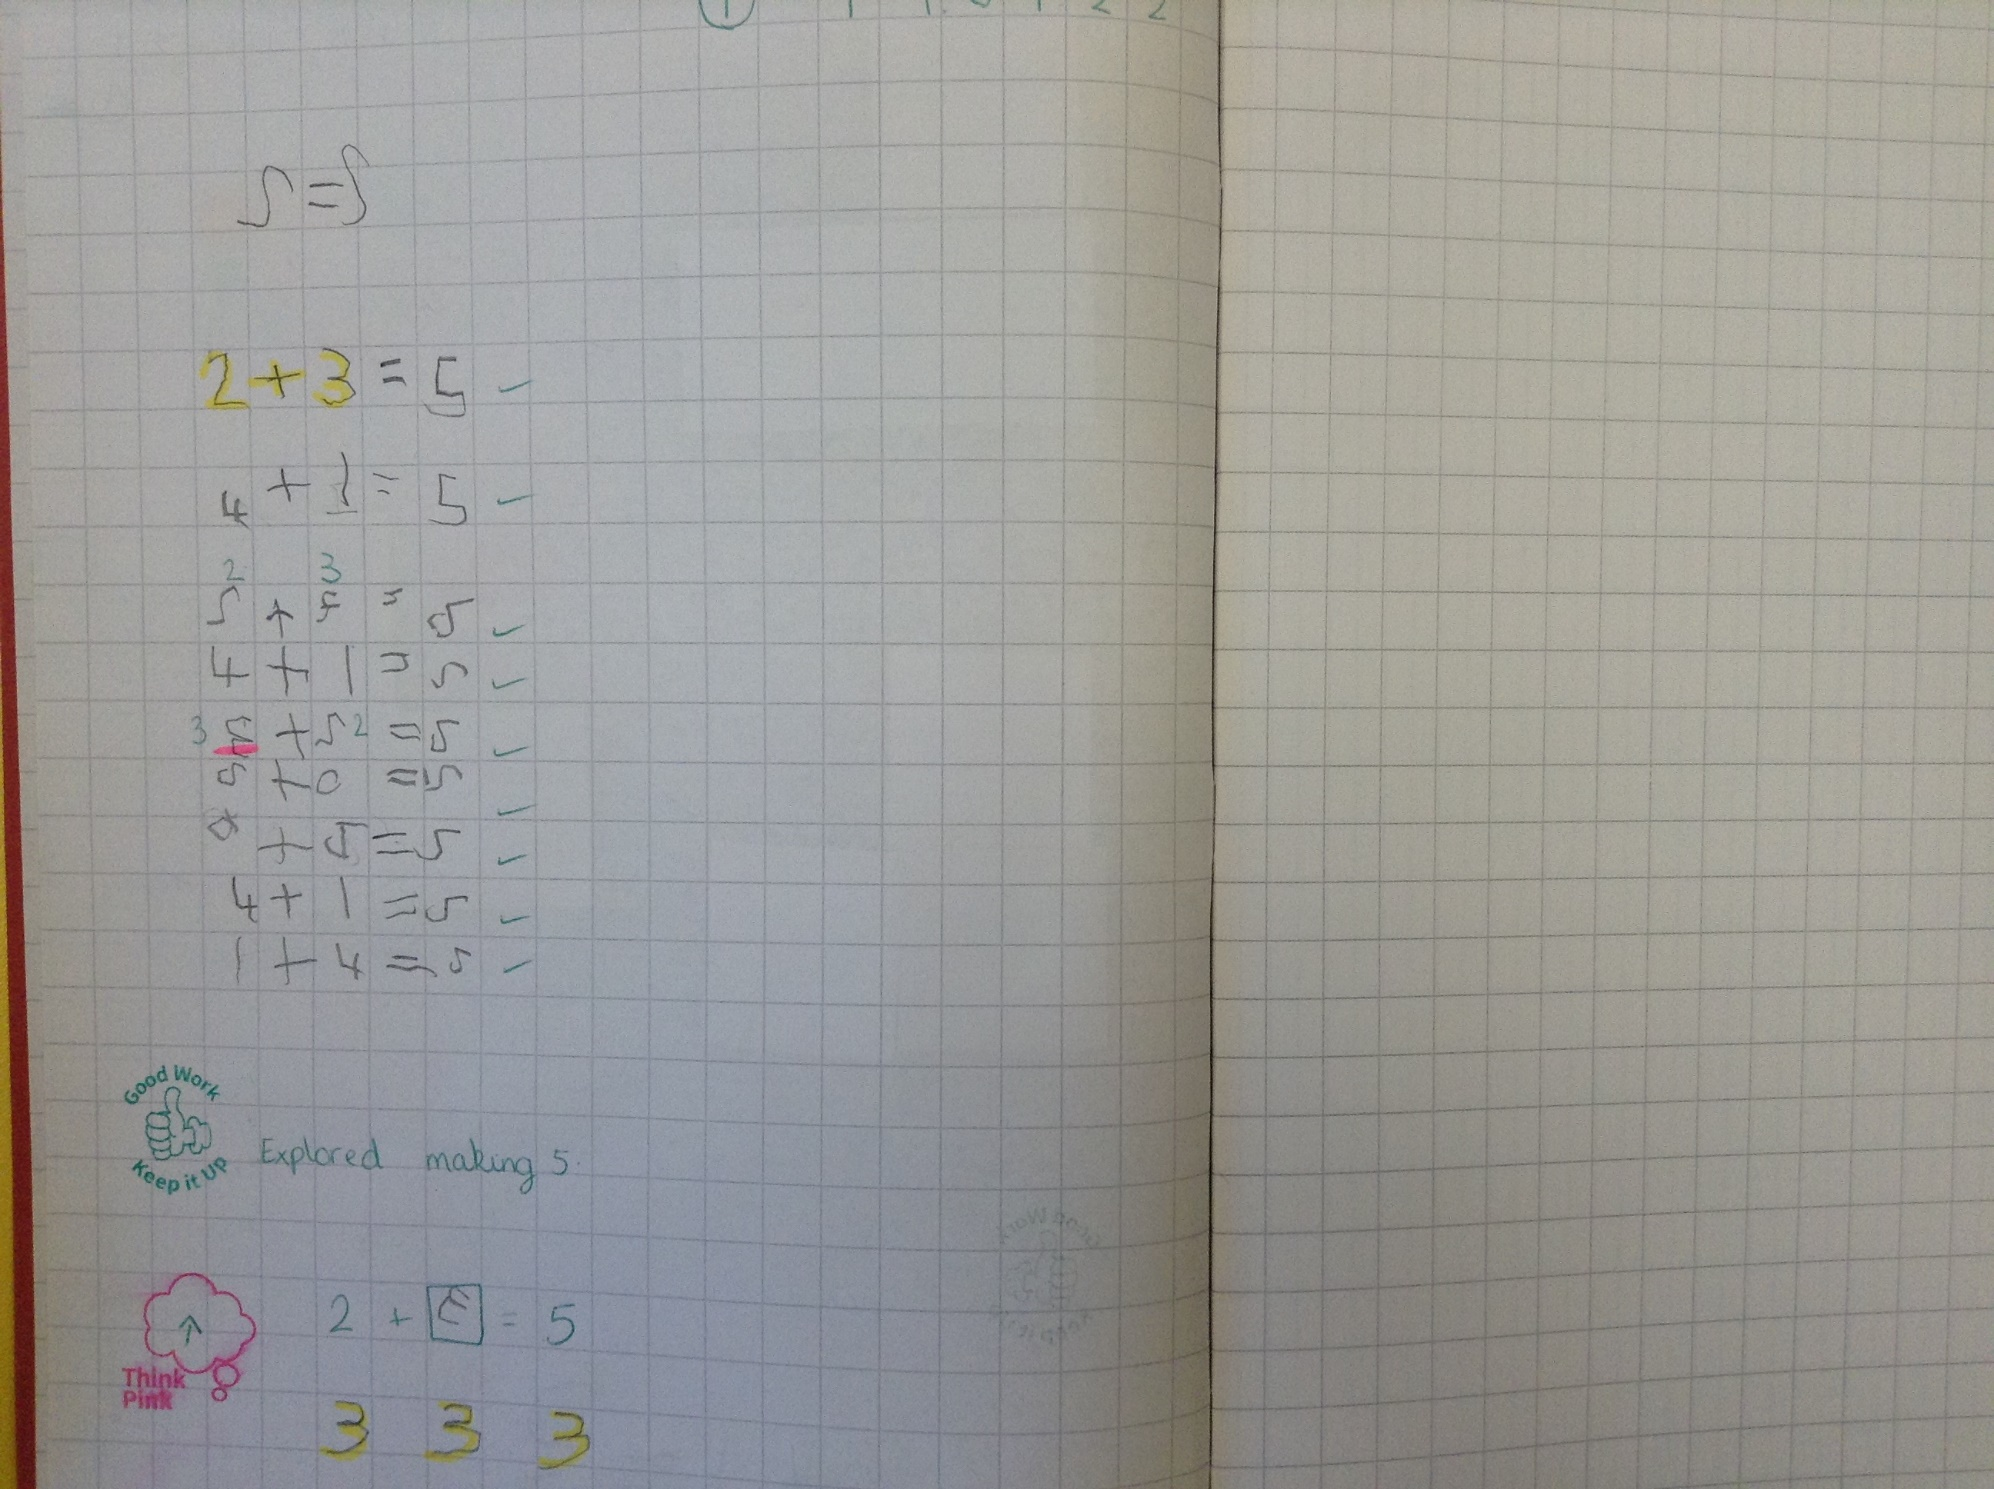 5 = 5
2 + 3 = 5
4 + 1 = 5
2 3
5 + 5 = 5
4 + 1 = 5
3 5 + 5 2 = 5
5 + 0 = 5
0 + 5 = 5
4 + 1 = 5
1 + 4 = 5
Good Work
Keep it up
Explored making 5.
2 + 3 = 5
Think
Pink
3 3 3